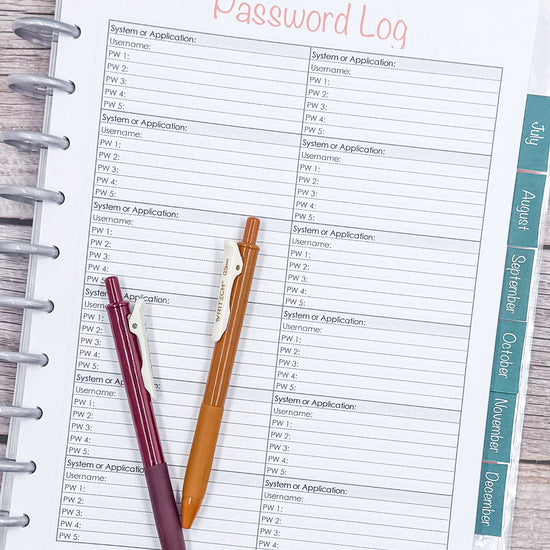 Password Log
System or Application:
Username:
PW 1:
PW 2:
PW 3:
PW 4:
PW 5:
System or Application:
Username:
PW 1:
PW 2:
PW 3:
PW 4:
PW 5:
System or Application:
Username:
PW 1:
PW 2:
PW 3:
PW 4:
PW 5:
System or Application:
Username:
PW 1:
PW 2:
PW 3:
PW 4:
PW 5:
System or Application:
Username:
PW 1:
PW 2:
PW 3:
PW 4:
PW 5:
System or Application:
Username:
PW 1:
PW 2:
PW 3:
PW 4:
PW 5:
System or Application:
Username:
PW 1:
PW 2:
PW 3:
PW 4:
PW 5:
System or Application:
Username:
PW 1:
PW 2:
PW 3:
PW 4:
PW 5:
System or Application:
Username:
PW 1:
PW 2:
PW 3:
PW 4:
PW 5:
System or Application:
Username:
PW 1:
PW 2:
PW 3:
PW 4:
PW 5:
System or Application:
Username:
PW 1:
PW 2:
PW 3:
PW 4:
PW 5:
System or Application:
Username:
PW 1:
PW 2:
PW 3:
PW 4:
PW 5:
July
August
September
October
November
December